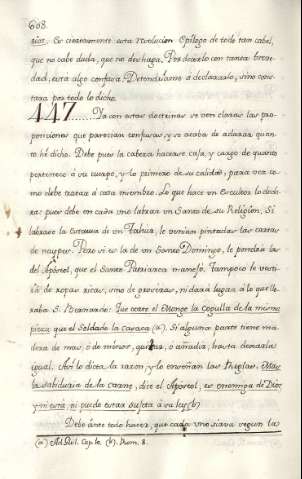 608
rior. Es ciertamente esta resolucion Epilogo de todo tan cabal,
que no cabe duda, que no deshaga. Por decirlo con tanta breve-
dad, esta algo confusa. Detendrémonos á declararlo, sino cons-
tara por todo lo dicho.
447..... Ya con estas doctrinas se ven claras las pro-
posiciones que parecian confusas, y se acaba de aclarar quan-
to hé dicho. Debe pues la cabeza hacerse cap, y cargo de quanto
pertenece á su cuerpo, y lo primero de su calidad, para ver co-
mo debe tratar á cada miembro. Lo que hace un Escultor lo decla-
ra: pues debe en cada uno labrar un Santo de su Religion. Si
labrase la Estatua de un Tahur, le vendrian pintadas las cartas
de naypes. Pero si es la de un Santo Domingo, le pondria las
del Apóstol, que el Santo Patriarca manejó. Tampoco le vesti-
rá de ropas ricas, sino de groseras, ni dará lugar á lo que llo-
raba S. Bernardo: Que corte el Monge la Cogulla de la misma
pieza que el Soldado la casaca (a). Si alguna parte tiene ma-
dera de mas, ó de menos, quitará, ó añadirá, hasta dexarla
igual. Asi lo dicta la razon, y lo enseñan las Reglas. Mas
la sabiduria de la Carne, dice el Apóstol, es enemiga de Dios,
y ni está, ni puede estar sujeta á su ley (b)
Debe ante todo hacer, que cada uno sirva segun las
(a) Ad Guil. Cap. 10. (b). Rom. 8.